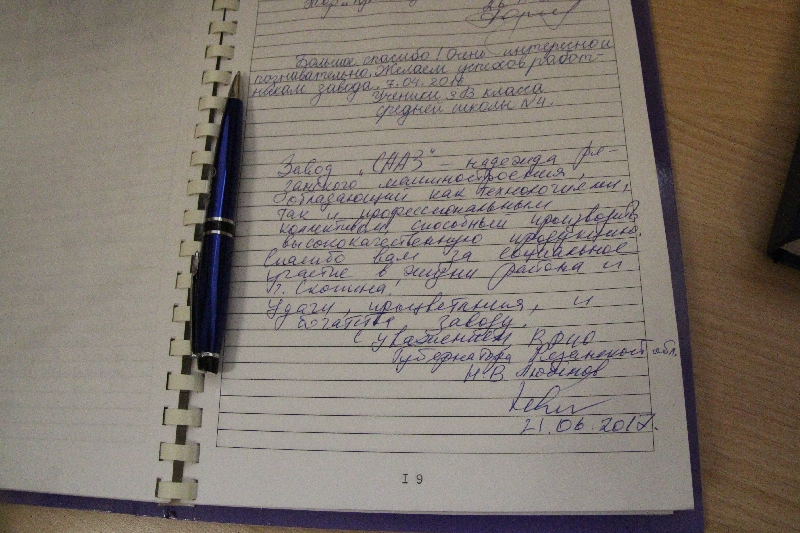 Большое спасибо! Очень интересно и
познавательно. Желаем успехов работ-
никам завода. 7.04.2017
Ученики 9В класса
средней школы №4.
Завод „СААЗ“ – надежда ря-
занского машиностроения,
обладающий как технологиями,
так и профессиональным
коллективом способный производить
высококачественную продукцию.
Спасибо вам за социальное
участие в жизни района и
г. Скопина,
Удачи, процветания, и
богатства заводу.
С уважением ВРИО
Губернатора Рязанской обл.
Н.В. Любимов
21.06.2017.
19